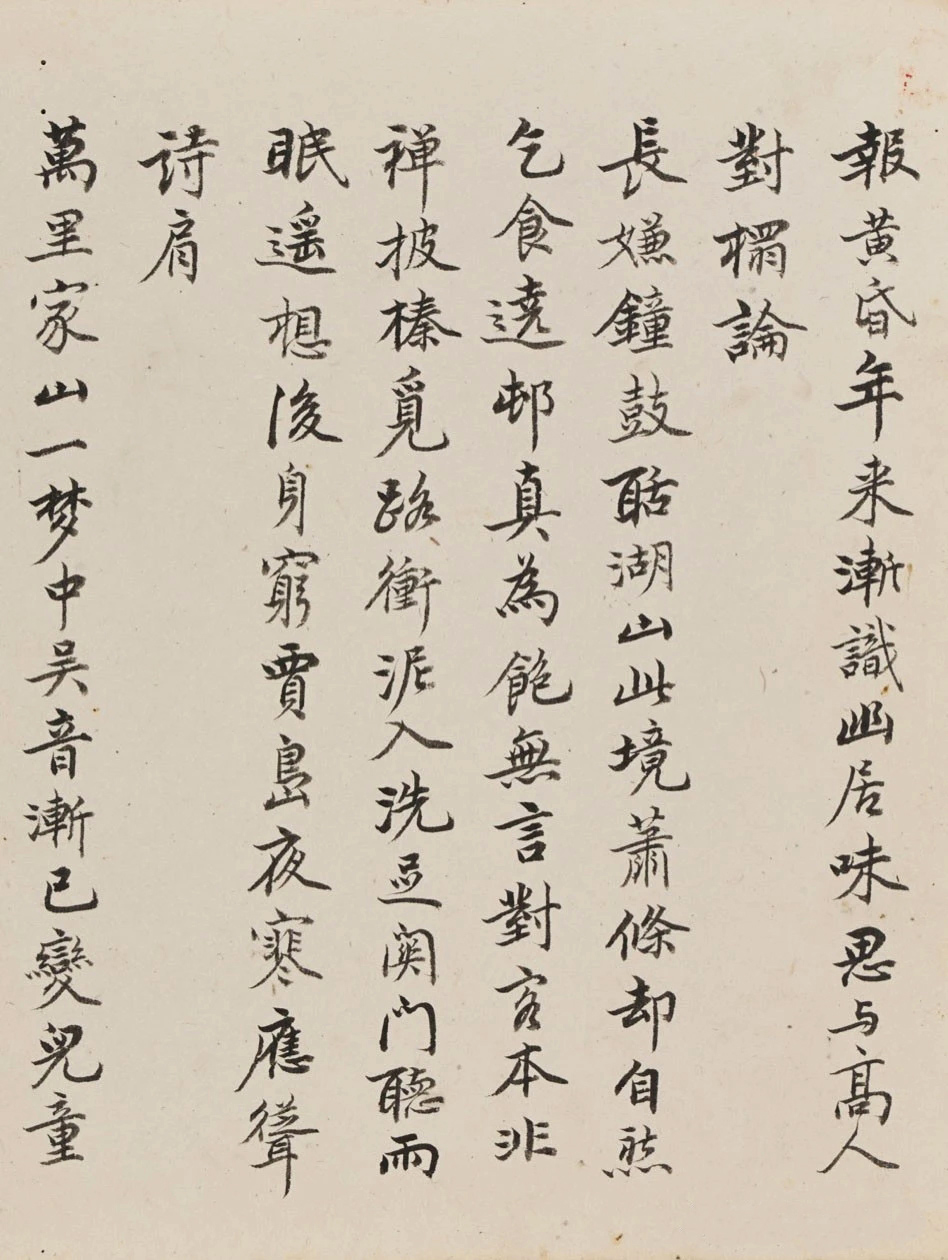 報黄昏年来漸識幽居味思与髙人
對榻論
長嫌鐘鼓聒湖山此境蕭條却自然
乞食遶邨真為飽無言對客本非
禅披榛覓路衝泥入洗足関門聽雨
眠遥想後身窮賈島夜寒應聳
诗肩
萬里家山一梦中吴音漸已變兒童